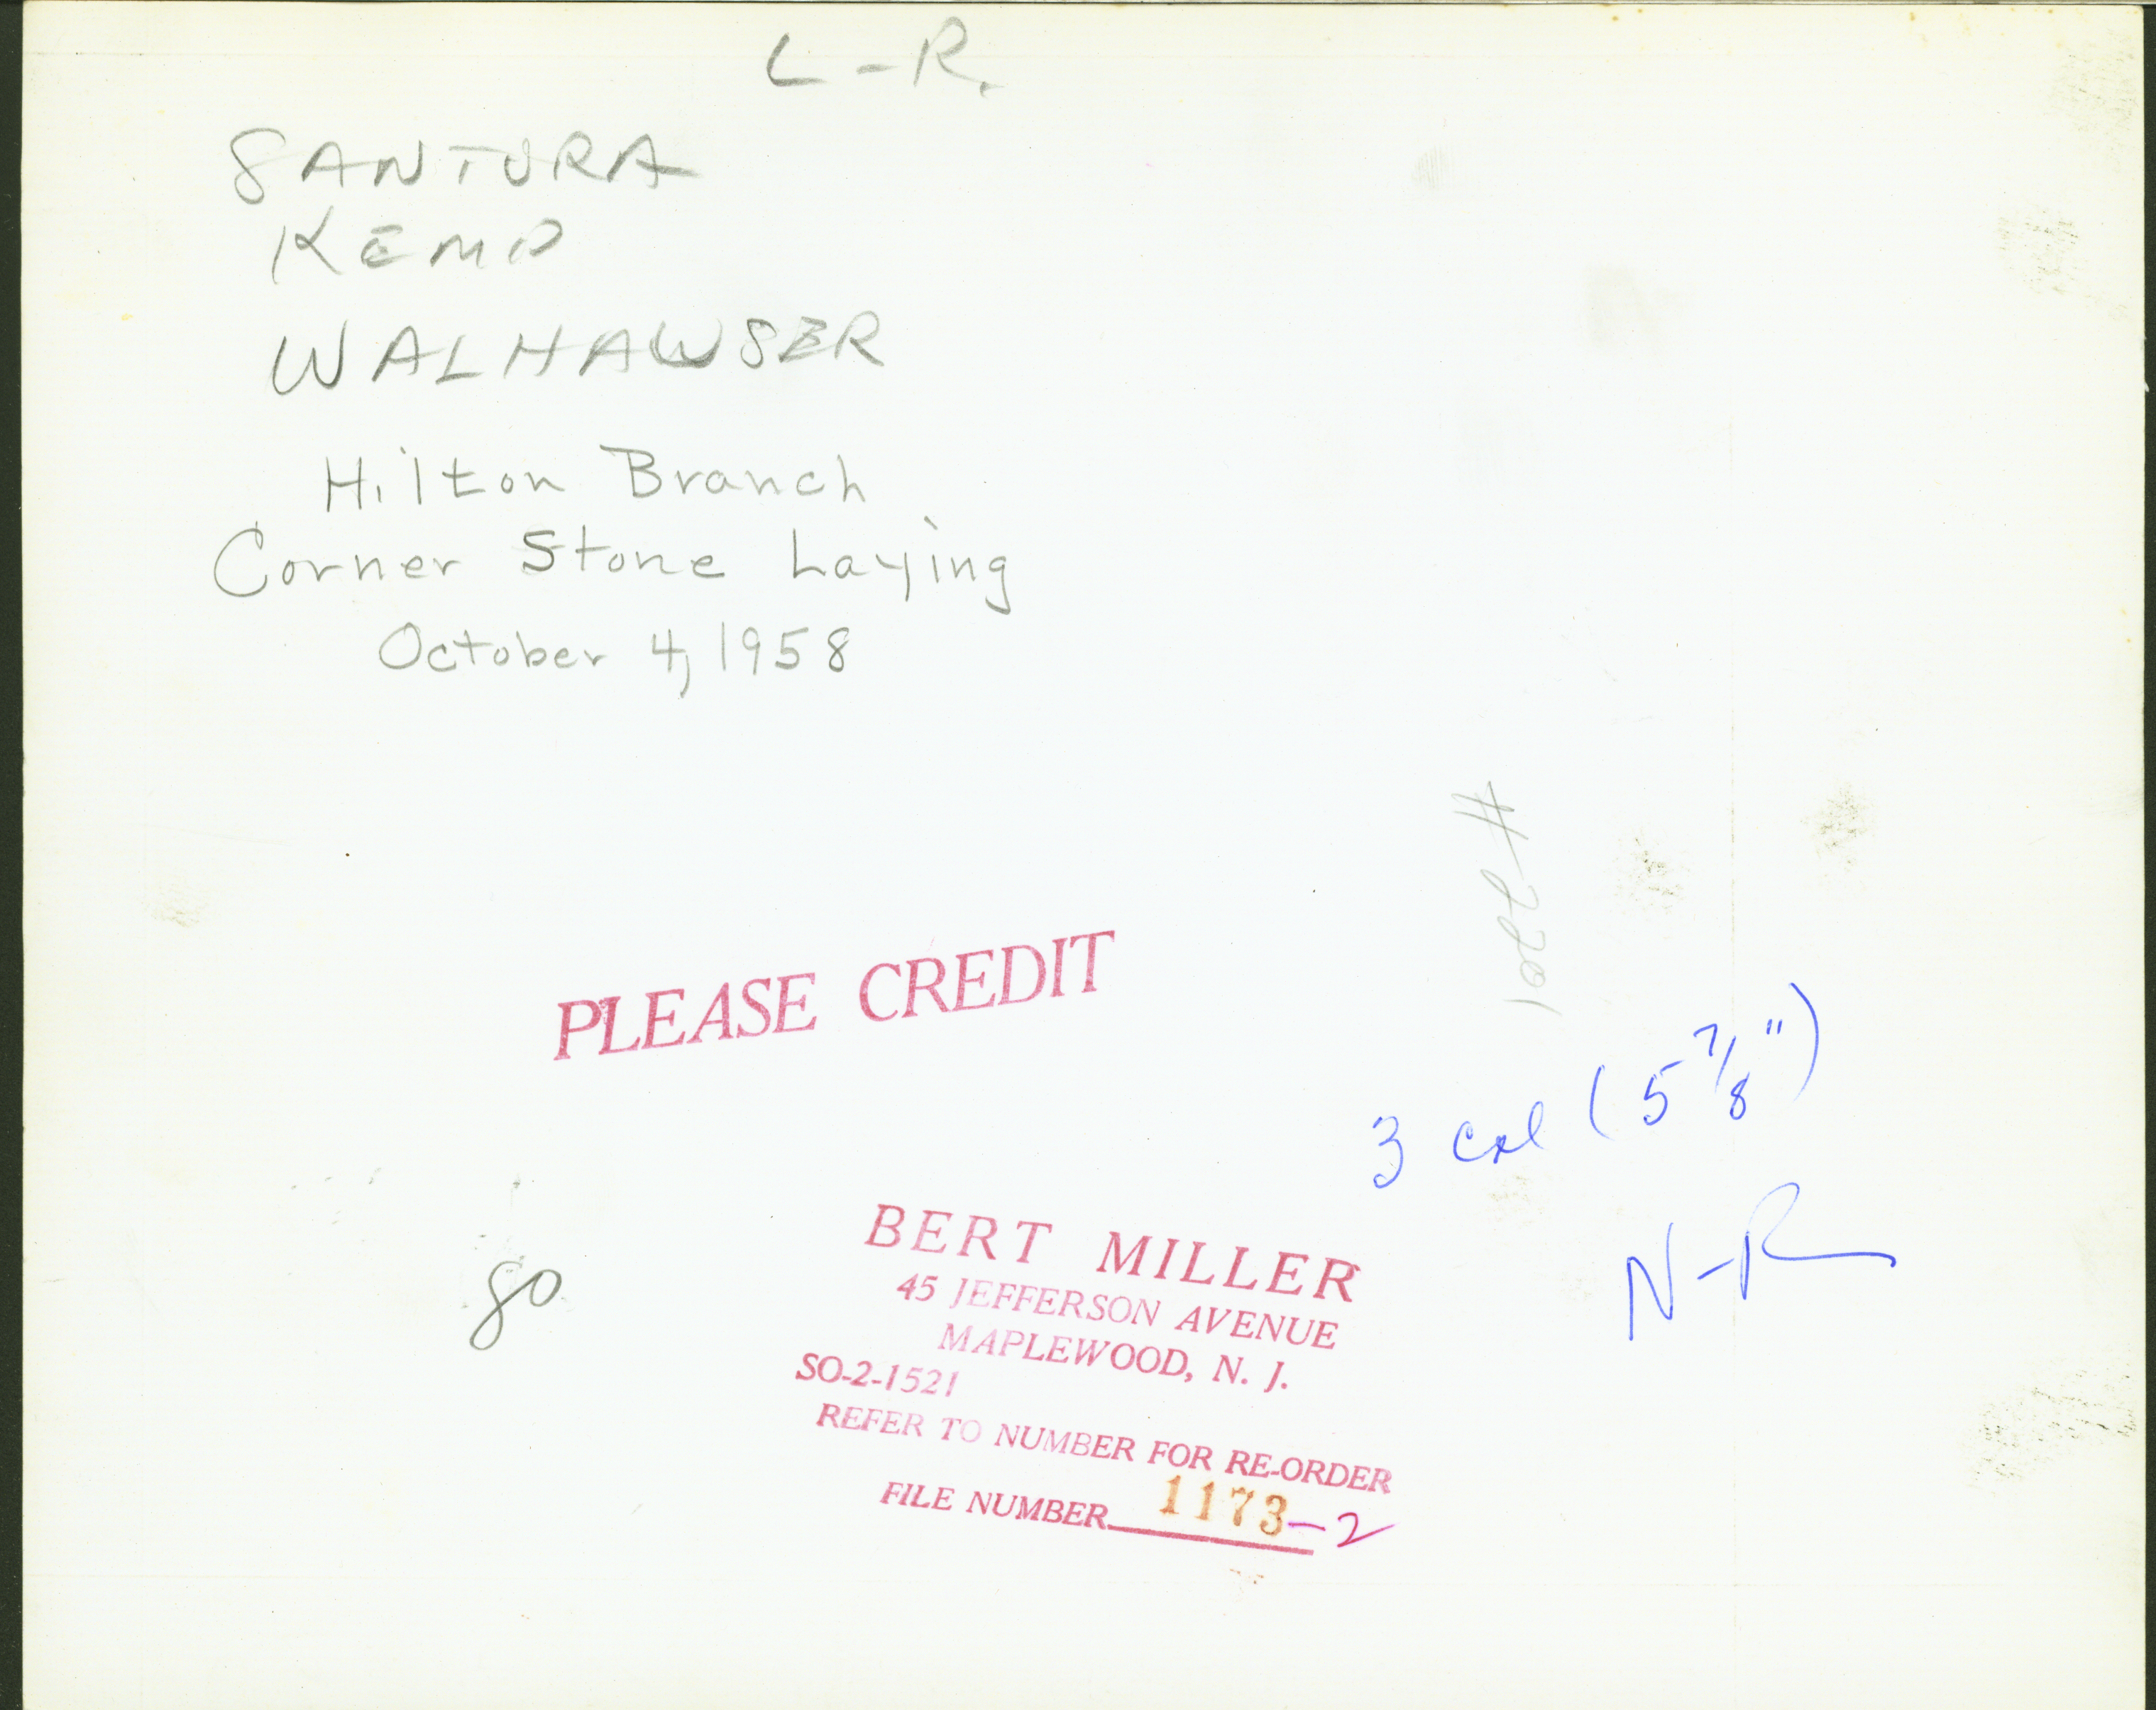 L-R.
SANTURA
KEMP
WALHAWSER
Hilton Branch
Corner Stone Laying
October 4, 1958
#2201
PLEASE CREDIT
3 col (5 7/8")
N-R
80
BERT MILLER
45 JEFFERSON AVENUE
MAPLEWOOD, N. J.
SO-2-1521
REFER TO NUMBER FOR RE-ORDER
FILE NUMBER 1173-2